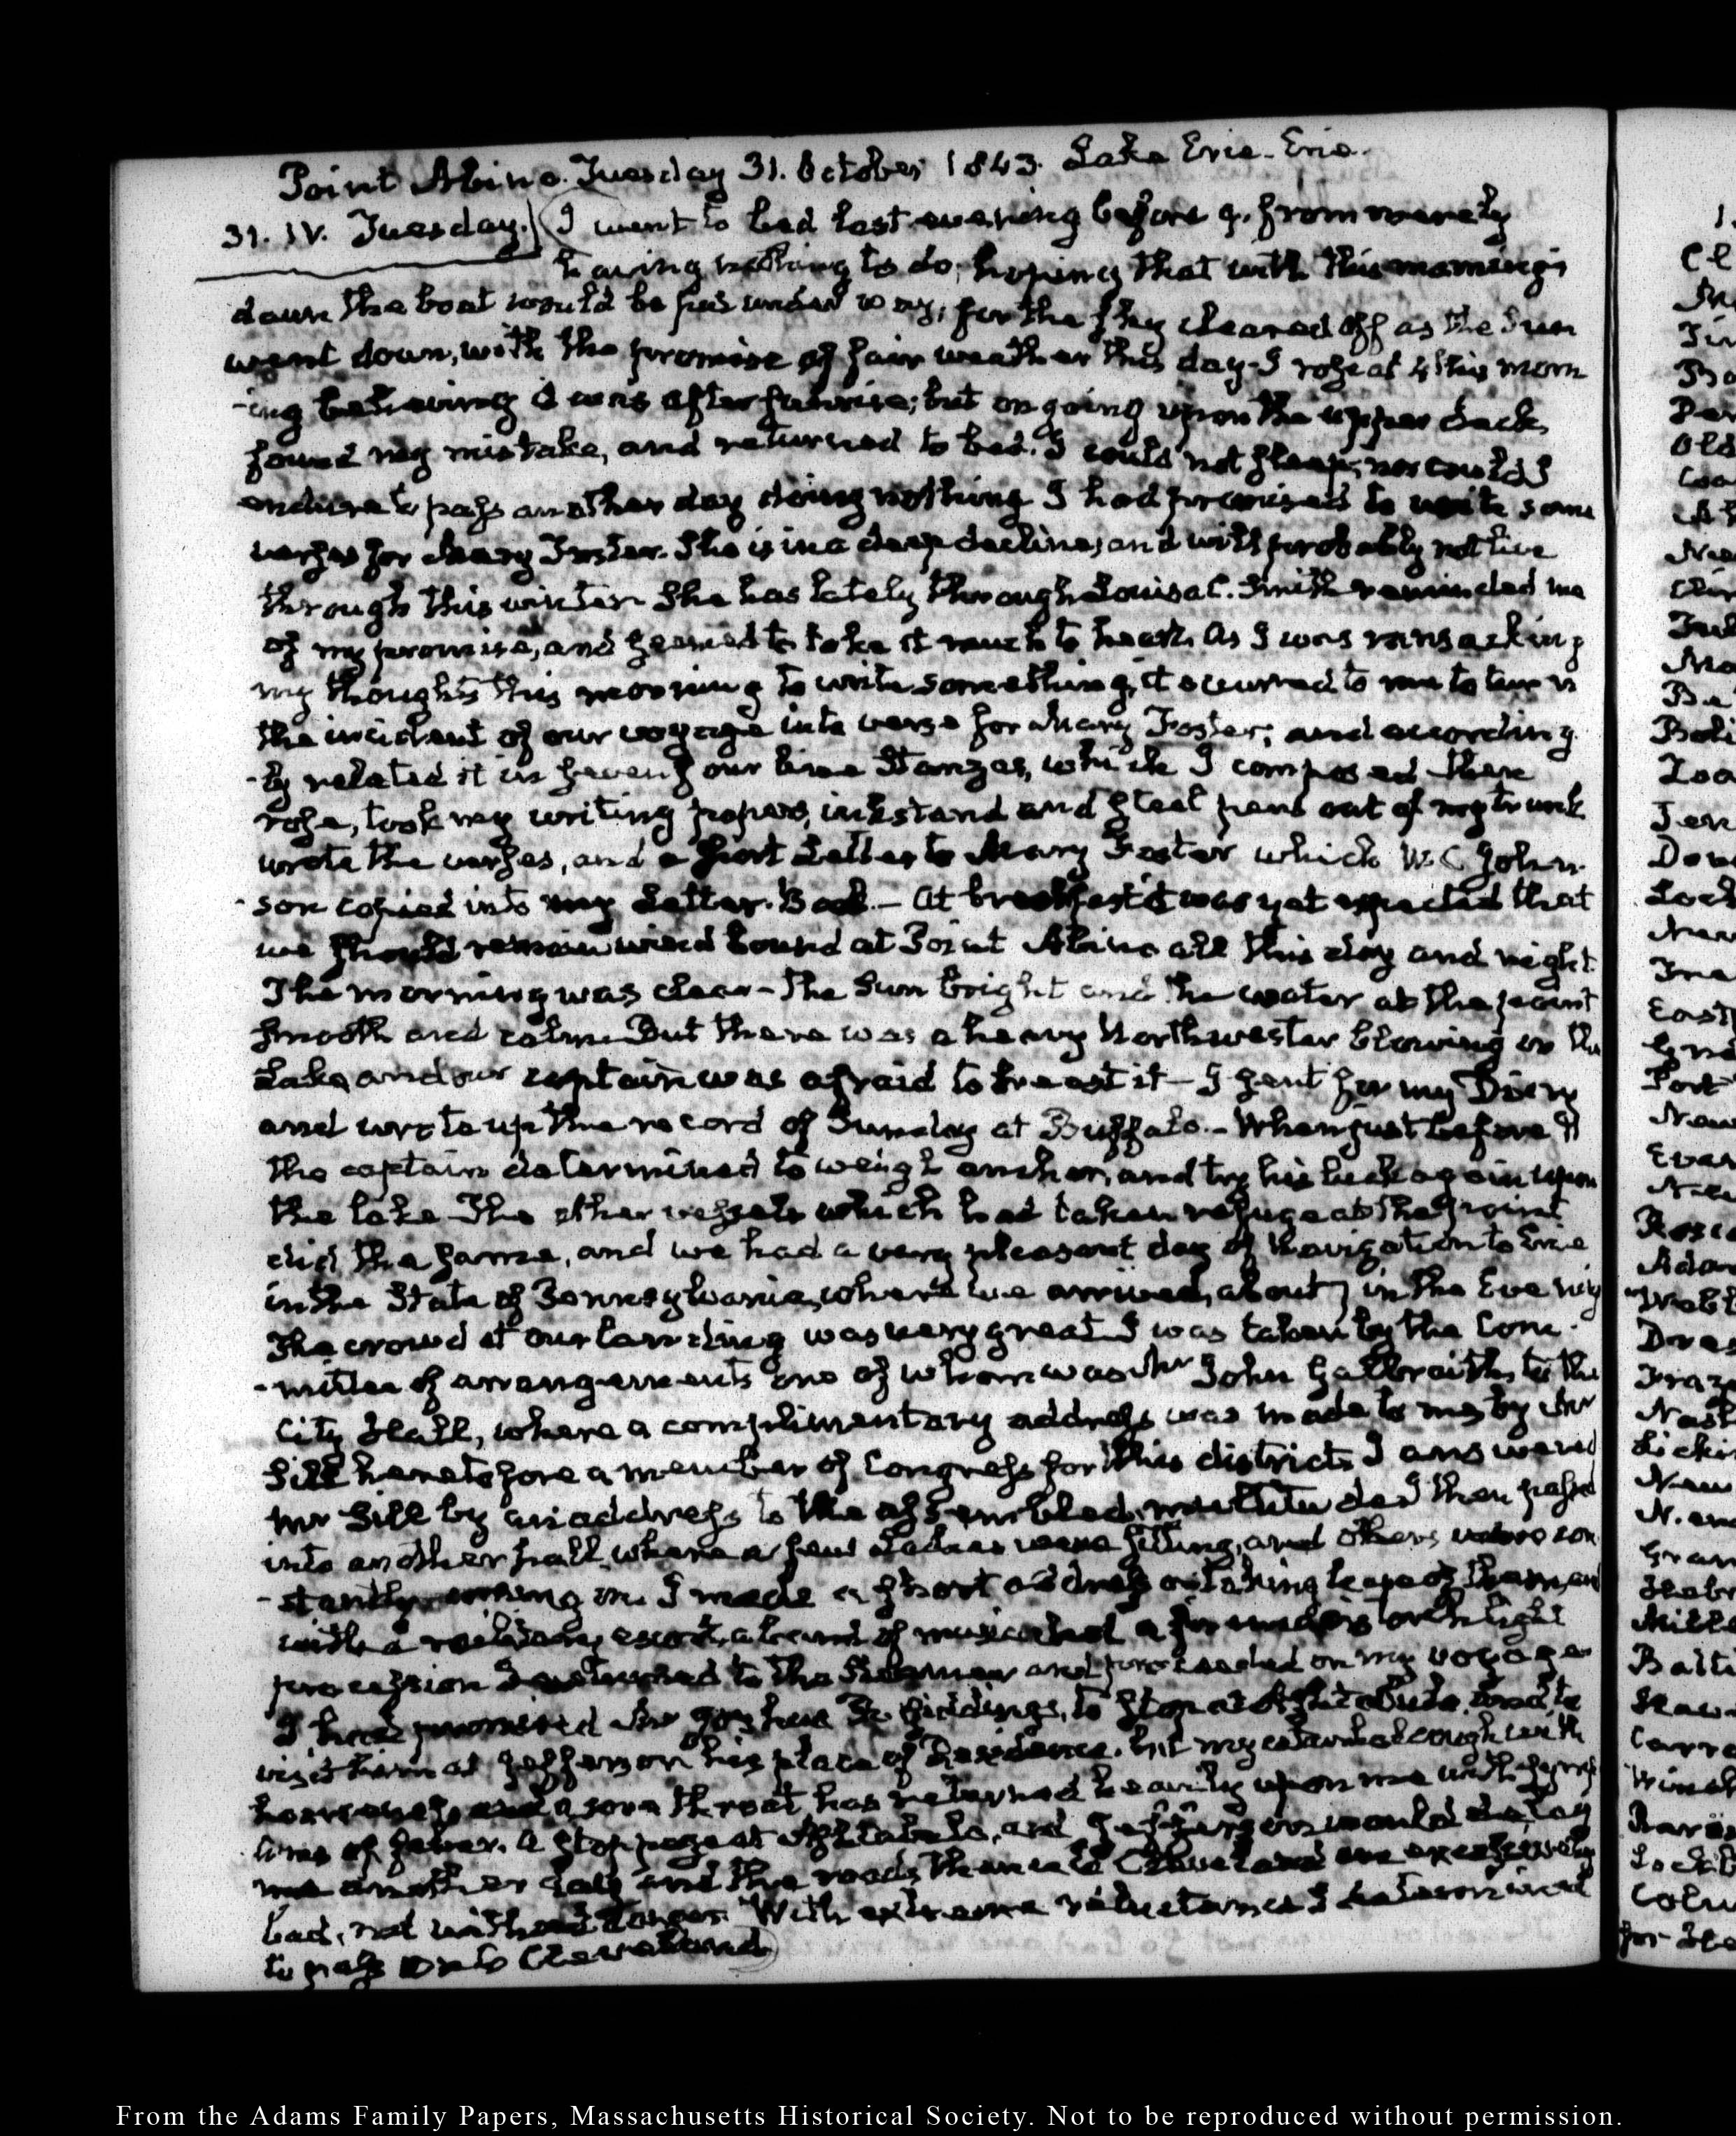 Point Abino. Tuesday 31. October 1843. Lake Erie - Erie.
31. IV. Tuesday. I went to bed last evening before 9. from merely
having nothing to do; hoping that with this morning's
dawn the boat would be under way; for the sky cleared off as the Sun
went down, with the promise of fair weather this day - I rose at 4 this morn
-ing believing it was after sunrise; but on going upon the upper deck,
found my mistake, and returned to bed. I could not sleep; nor could I
endure to pass another day doing nothing I had promised to write some
verses for Mary Foster. She is in a deep decline, and will probably not live
through this winter. She has lately through Louisa C. Smith reminded me
of my promise, and seemed to take it much to heart. As I was ransacking
my thoughts this morning to write something, it occurred to me to turn
the incident of our voyage into verse for Mary Foster; and according
-ly related it in seven four line Stanzas, which I composed then
rose, took my writing paper, inkstand and steel pens out of my trunk
wrote the verses, and a short Letter to Mary Foster which W. C John-
son copied into my Letter-Book. - At breakfast it was yet expected that
we should remain wind bound at Point Abino all this day and night.
The morning was clear - The Sun bright and the water at the point
smooth and calm. But there was a heavy Northwester blowing on the
Lake, and our captain was afraid to breast it - I sent for my Diary
and wrote up the record of Sunday at Buffalo. - When just before 9
the captain determined to weigh anchor, and try his luck again upon
the lake. The other vessels which had taken refuge at the point
did the same, and we had a very pleasant day of navigation to Erie
in the State of Pennsylvania, where we arrived, about 7 in the Evening
The crowd at our landing was very great. I was taken by the Com-
-mittee of arrangements one of whom was Mr John Galbraith, to the
City Hall, where a complimentary address was made to me by Mr
Sill heretofore a member of Congress for this district. I answered
Mr Sill by an address to the assembled multitude. I then passed
into another hall, where a few Ladies were sitting, and others were con
-stantly coming in. I made a short address on taking leave of them, and
with a military escort, a band of music and a torch light
procession I returned to the Steamer and proceeded on my voyage
I had promised Mr Joshua R. Giddings, to stop at Ashtabula, and to
visit him at Jefferson his place of Residence. but my catarrhal cough with
hoarseness and a sore throat, has returned heavily upon me with symp-
toms of fever. A stoppage at Ashtabula, and Jefferson would delay
me another day and the roads thence to Cleveland are excessively
bad, not without danger. With extreme reluctance I determined
to pass on to Cleveland